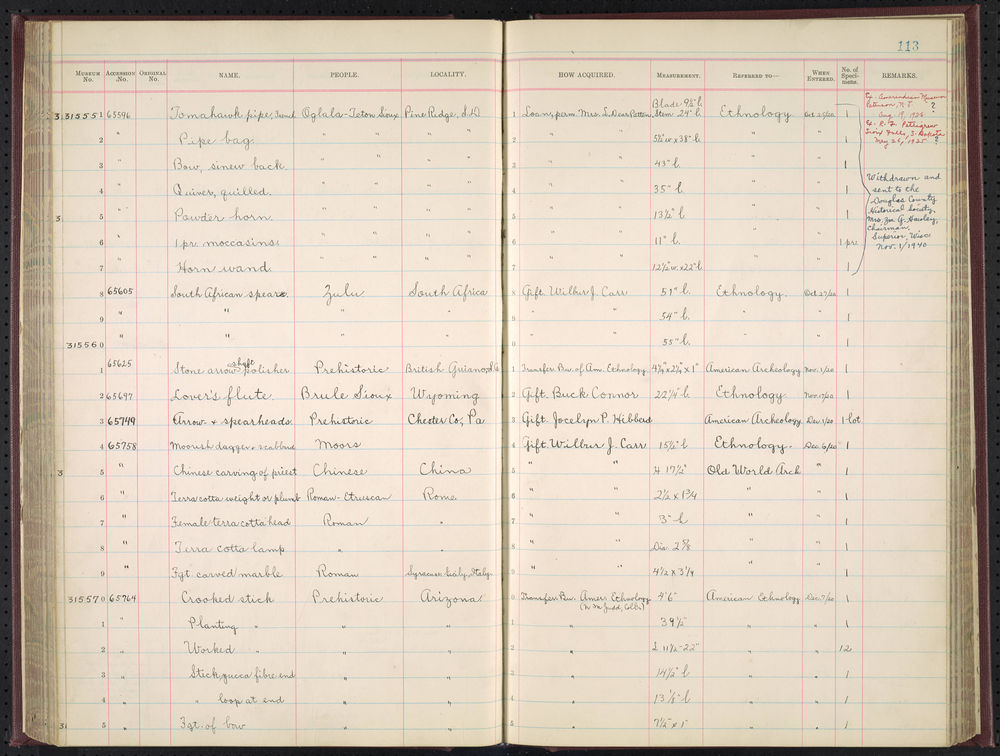 113
MUSEUM No. ACCESSION No. ORIGINAL No. NAME. PEOPLE. LOCALITY. HOW ACQUIRED. MEASUREMENT. REFERRED TO— WHEN ENTERED. No. of Specimens. REMARKS.
315551 65596 Tomahawk pipe, Oglala-Teton Sioux Pine Ridge, S.D. 1 Loan, perm. Mrs. S. Dear Patton Blade 9½" l. Stem 24" l. Ethnology Oct 25/20 1
2 " Pipe bag. " " " " 2 " " 5½" w x 38" l. " " 1
3 " Bow, sinew back. " " " " 3 " " 43" l. " " 1
4 " Quiver, quilled. " " " " 4 " " 35" l. " " 1
3 5 " Powder horn. " " " " 5 " " 13½" l. " " 1
6 " 1 pr. moccasins. " " " " 6 " " 11" l. " " 1 pr.
7 " Horn wand. " " " " 7 " " 12½" w. x 22" l. " " 1
Paterson, N.J. ?
Aug. 19, 1925
Ex. R. F. Pettigrew
Sioux Falls, S. Dakota
May 26, 1925 ?
Withdrawn and
sent to the
Douglas County
Historical Society,
Mrs. Jno G. Hawley,
Chairman,
Superior, Wisc
Nov. 1/1940
8 65605 South African spear. Zulu South Africa 8 Gift. Wilbur J. Carr 51" l. Ethnology. Oct 27/20 1
9 " " " " 9 " " 54" l. " " 1
315560 " " " " 0 " " 55" l. " " 1
1 65625 Stone arrow shaft polisher Prehistoric British Guiana, 1 Transfer Bur. of Am. Ethnology. American Archeology Nov. 1/20 1
2 65697 Lover's flute. Brule Sioux Wyoming 2 Gift. Buck Connor 22¼" l. Ethnology. Nov. 17/20 1
3 65749 Arrow- & spearheads. Prehistoric Chester Co, Pa 3 Gift. Jocelyn P. Hibberd American Archeology Dec. 1/20 1-lot
4 65758 Moorish dagger & scabbard Moors 4 Gift. Wilbur J. Carr 15½" l Ethnology. Dec. 6/20 1
3 5 " Chinese carving of priest Chinese China 5 " " H 17½" Old World Arch " 1
6 " Terra cotta weight or plumb Roman-Etruscan Rome 6 " " 2½ x 1¾ " " 1
7 " Female terra cotta head Roman " 7 " " 3" h " " 1
8 " Terra cotta lamp " " 8 " " Dia. 2⅞ " " 1
9 " Fgt. carved marble Roman Syracuse Sicily, Italy. 9 " " 4½ x 3¼ " " 1
315570 65764 Crooked stick Prehistoric Arizona 0 Transfer Bur. Amer. Ethnology 4'6" American Ethnology Dec. 7/20 1
(N. M. Judd, Coll.)
1 " Planting " " " 1 " 39½" " " 1
2 " Worked " " " 2 " L 11½-22" " " 12
3 " Stick, yucca fibre end " " 3 " 14½" l " " 1
4 " " loop at end " " 4 " 13⅛" l " " 1
31 5 " Fgt. of bow " " 5 " 7½" x 1" " " 1